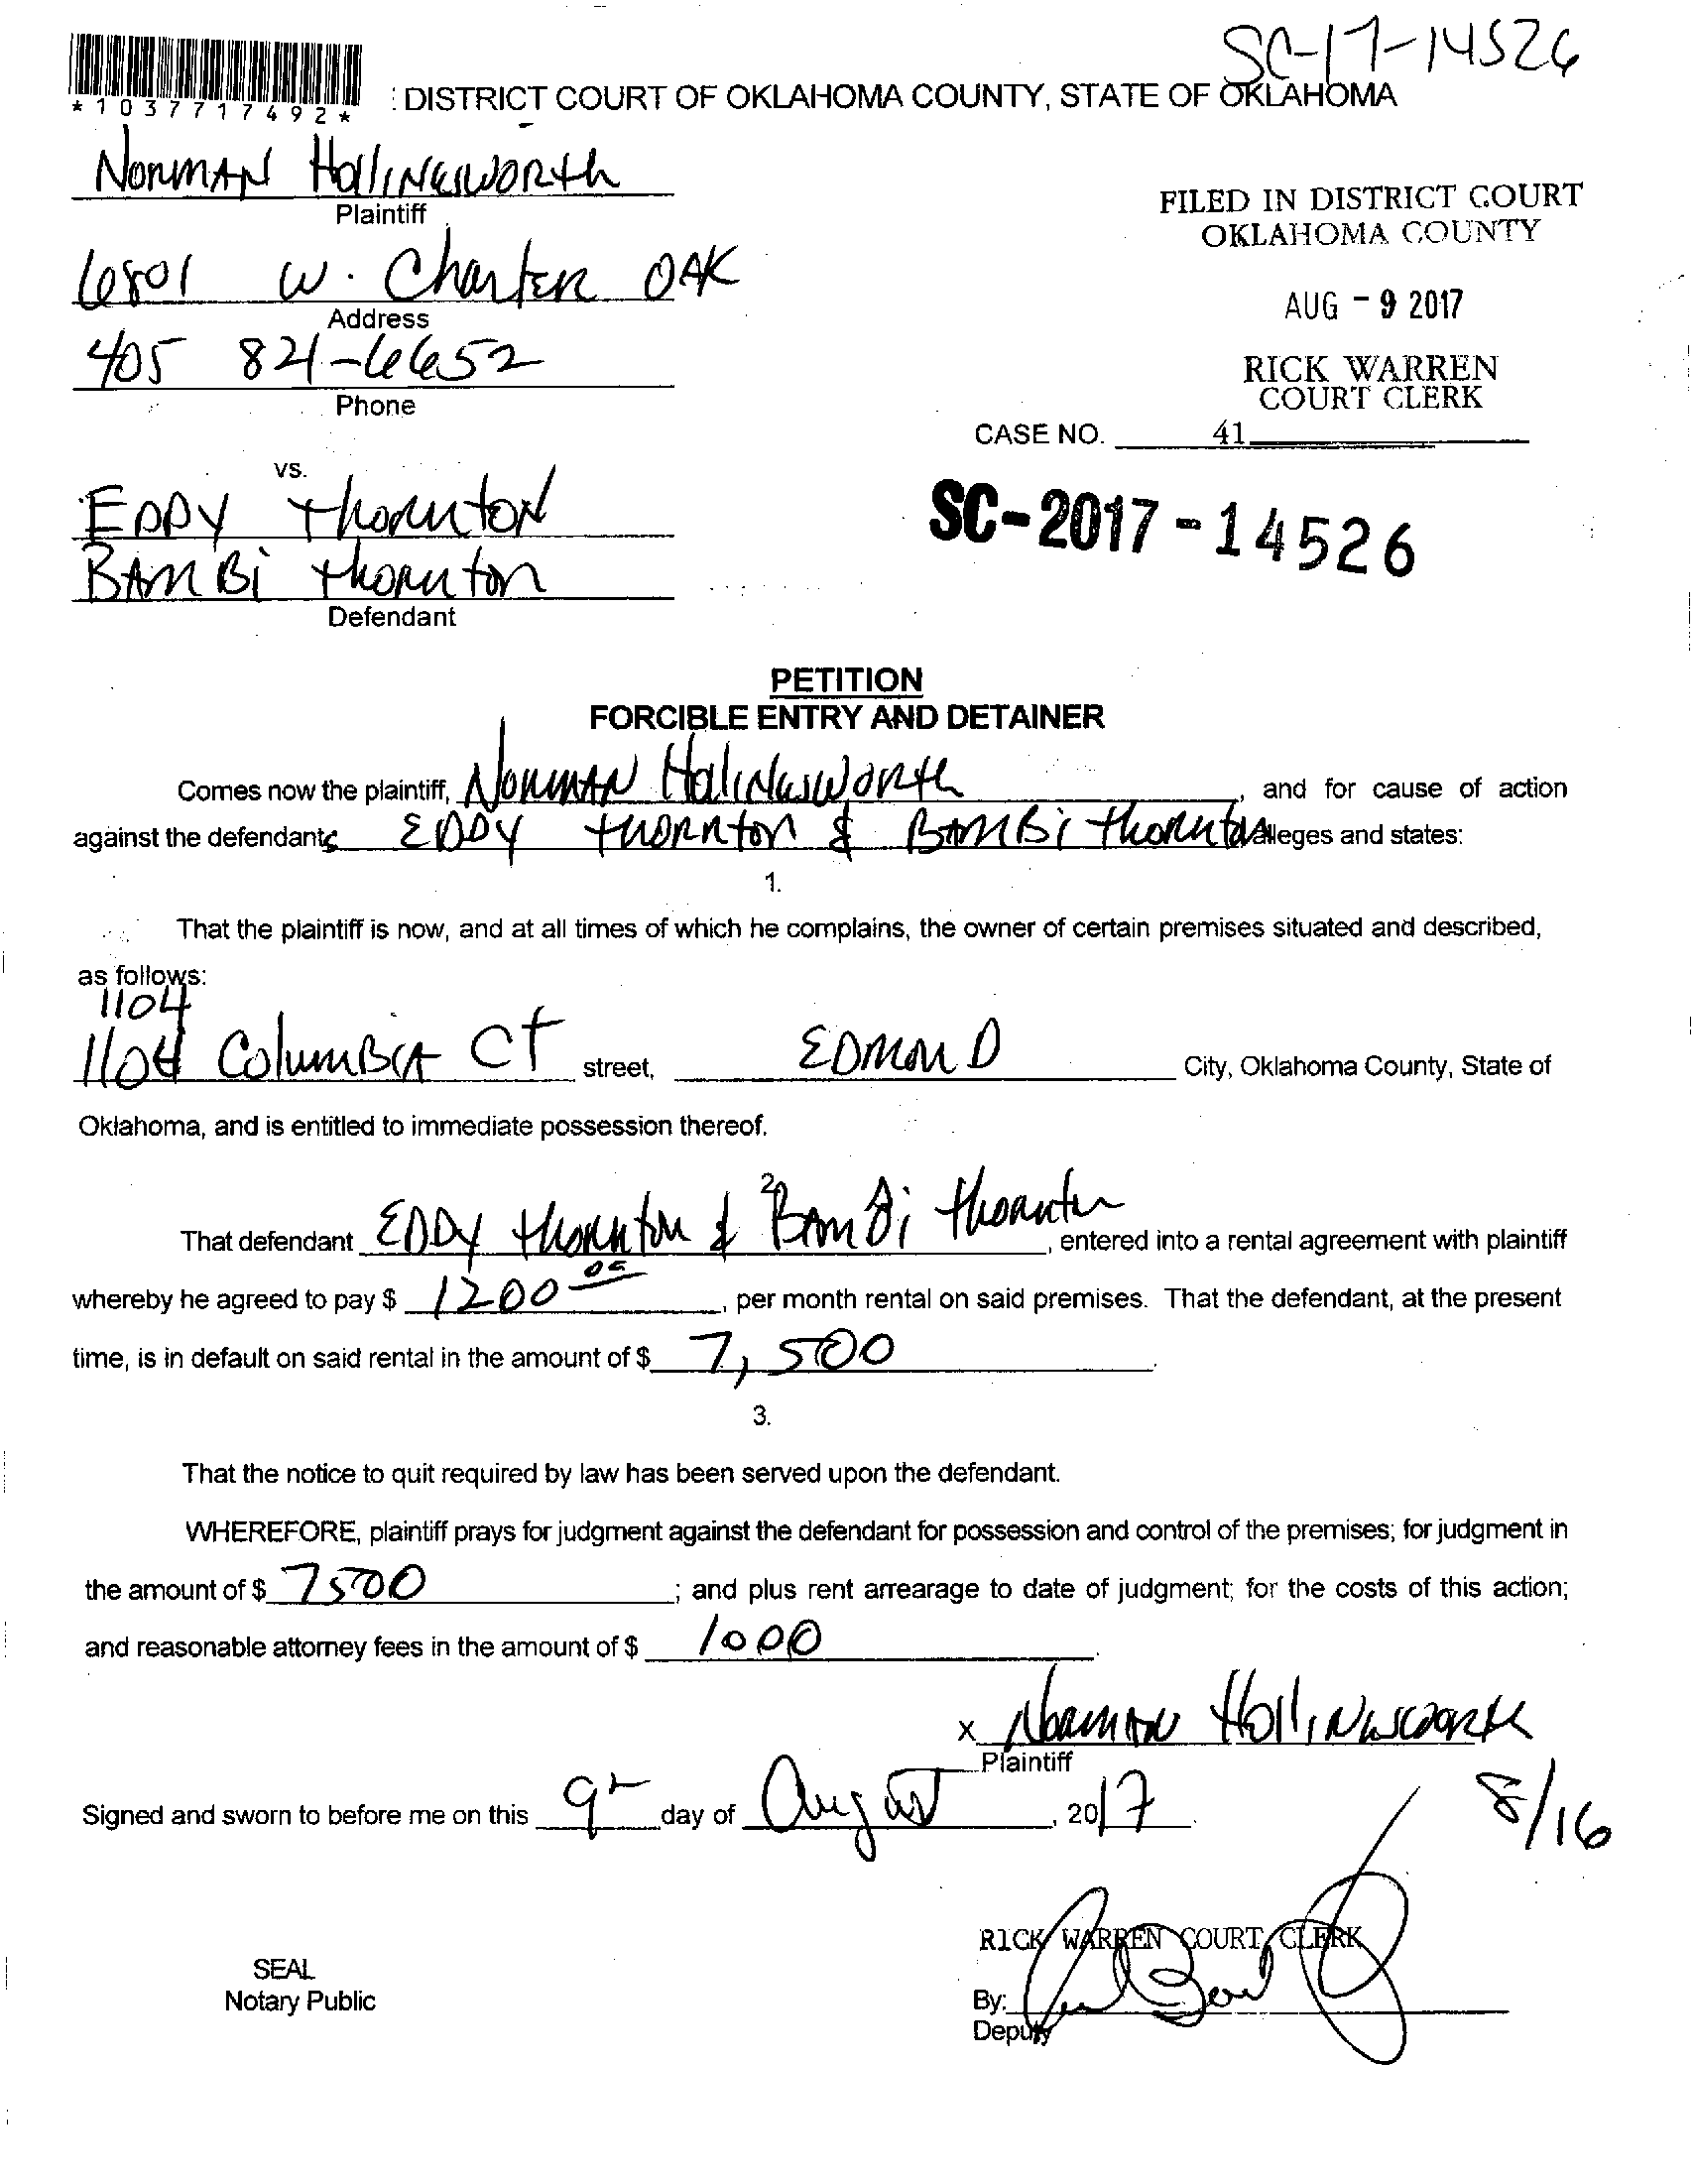 SC-17-14526
*1037717492*
: DISTRICT COURT OF OKLAHOMA COUNTY, STATE OF OKLAHOMA
NORMAN HollINGSWORth
Plaintiff
FILED IN DISTRICT COURT
OKLAHOMA COUNTY
6801 W. Charter OAK
Address
AUG - 9 2017
405 821-6652
Phone
RICK WARREN
COURT CLERK
CASE NO. 41
vs.
EDDY thornton
SC-2017-14526
BAMBi thornton
Defendant
PETITION
FORCIBLE ENTRY AND DETAINER
Comes now the plaintiff, NORMAN HolINGSWORth, and for cause of action
against the defendants EDDY thornton & BAMBi thornton alleges and states:
1.
That the plaintiff is now, and at all times of which he complains, the owner of certain premises situated and described,
as follows:
1104
1104 ColumBIA Ct street, EDMOND City, Oklahoma County, State of
Oklahoma, and is entitled to immediate possession thereof.
2.
That defendant EDDY thornton & BAMBi thornton, entered into a rental agreement with plaintiff
whereby he agreed to pay $ 1200 00, per month rental on said premises. That the defendant, at the present
time, is in default on said rental in the amount of $ 7,500.
3.
That the notice to quit required by law has been served upon the defendant.
WHEREFORE, plaintiff prays for judgment against the defendant for possession and control of the premises; for judgment in
the amount of $ 7500; and plus rent arrearage to date of judgment; for the costs of this action;
and reasonable attorney fees in the amount of $ 1000.
x NORMAN HollINGSWORth
Plaintiff
Signed and sworn to before me on this 9th day of August, 2017.
8/16
RICK WARREN COURT CLERK
SEAL
Notary Public
By:
Deputy